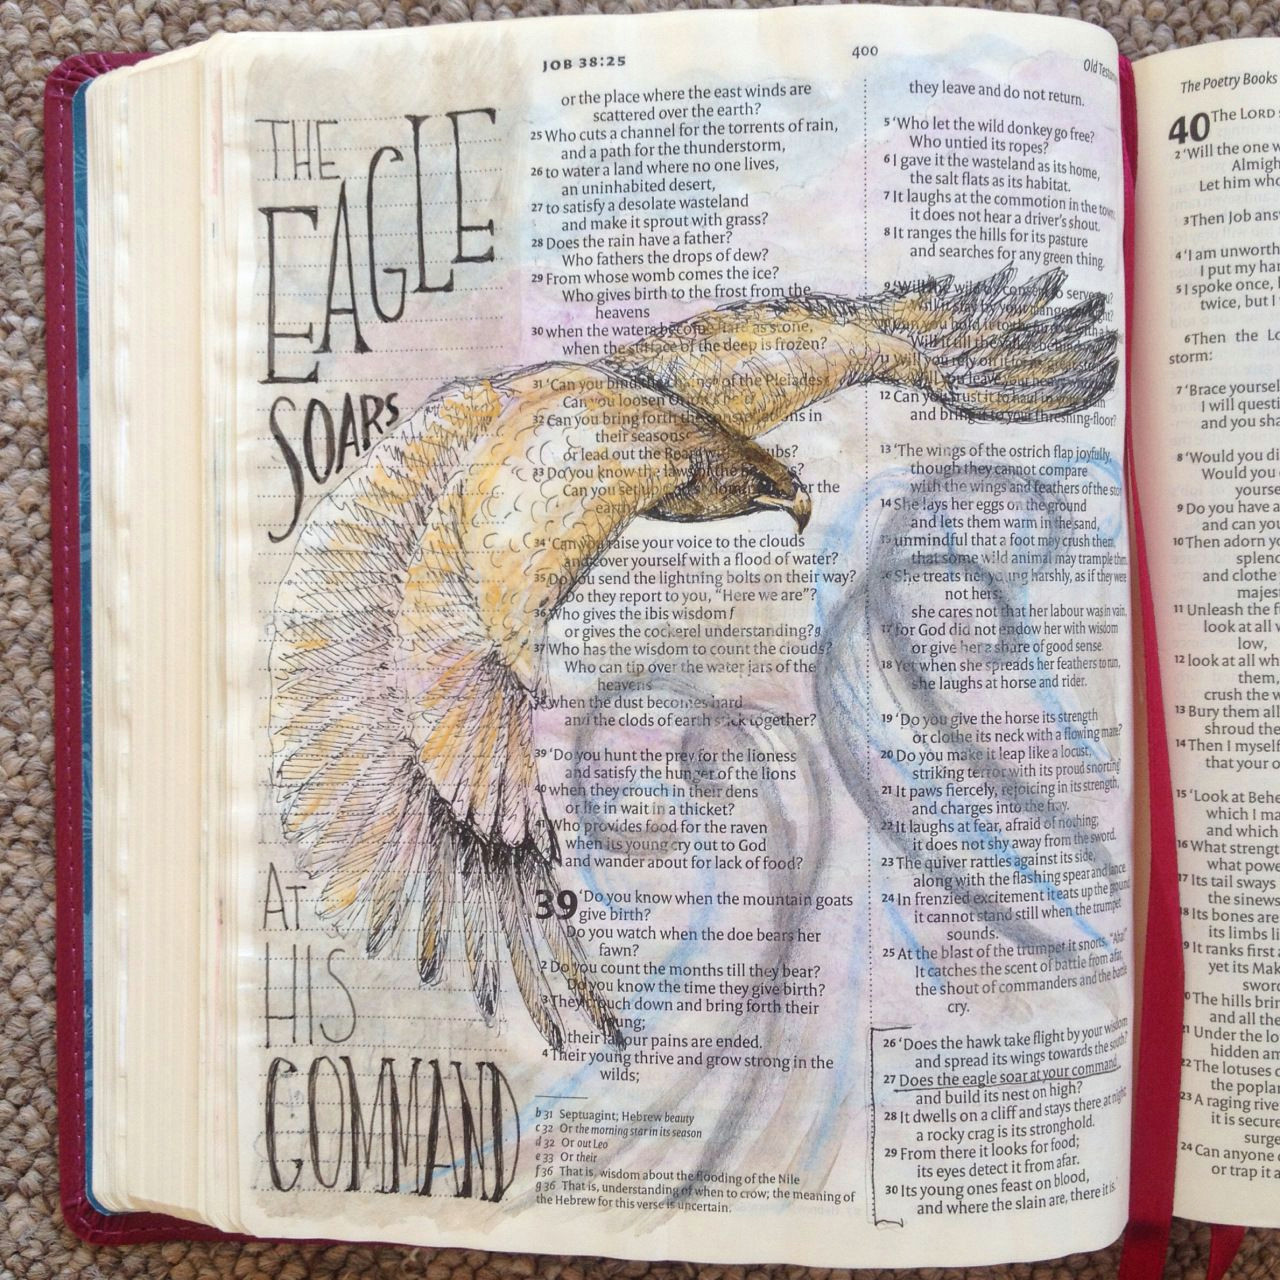 THE
EAGLE
SOARS
AT
HIS
COMMAND
JOB 38:25
400
or the place where the east winds are
scattered over the earth?
25 Who cuts a channel for the torrents of rain,
and a path for the thunderstorm,
26 to water a land where no one lives,
an uninhabited desert,
27 to satisfy a desolate wasteland
and make it sprout with grass?
28 Does the rain have a father?
Who fathers the drops of dew?
29 From whose womb comes the ice?
Who gives birth to the frost from the
heavens
30 when the waters become hard as stone,
when the surface of the deep is frozen?
31 ‘Can you bind the chains of the Pleiades?
Can you loosen
32 Can you bring forth the constellations in
their seasons
or lead out the Bear with cubs?
33 Do you know the laws of the
Can you set up over the
earth
34 ‘Can you raise your voice to the clouds
and cover yourself with a flood of water?
35 Do you send the lightning bolts on their way?
Do they report to you, “Here we are”?
36 Who gives the ibis wisdom f
or gives the cockerel understanding? g
37 Who has the wisdom to count the clouds?
Who can tip over the water jars of the
heavens
38 when the dust becomes hard
and the clods of earth stick together?
39 ‘Do you hunt the prey for the lioness
and satisfy the hunger of the lions
40 when they crouch in their dens
or lie in wait in a thicket?
41 Who provides food for the raven
when its young cry out to God
and wander about for lack of food?
39 ‘Do you know when the mountain goats
give birth?
Do you watch when the doe bears her
fawn?
2 Do you count the months till they bear?
Do you know the time they give birth?
3 They crouch down and bring forth their
young;
their labour pains are ended.
4 Their young thrive and grow strong in the
wilds;
b 31 Septuagint; Hebrew beauty
c 32 Or the morning star in its season
d 32 Or out Leo
e 33 Or their
f 36 That is, wisdom about the flooding of the Nile
g 36 That is, understanding of when to crow; the meaning of
the Hebrew for this verse is uncertain.
Old
they leave and do not return.
5 ‘Who let the wild donkey go free?
Who untied its ropes?
6 I gave it the wasteland as its home,
the salt flats as its habitat.
7 It laughs at the commotion in the town;
it does not hear a driver’s shout.
8 It ranges the hills for its pasture
and searches for any green thing.
9 ‘Will the wild ox consent to serve you?
Will it stay by your manger
Can you hold it to the furrow with a
Will it till the valleys behind
11 Will you rely on it for
Will you leave your heavy
12 Can you trust it to haul in your
and bring it to your threshing-floor?
13 ‘The wings of the ostrich flap joyfully,
though they cannot compare
with the wings and feathers of the
14 She lays her eggs on the ground
and lets them warm in the sand,
15 unmindful that a foot may crush them,
that some wild animal may trample them.
16 She treats her young harshly, as if they were
not hers;
she cares not that her labour was in vain,
17 for God did not endow her with wisdom
or give her a share of good sense.
18 Yet when she spreads her feathers to run,
she laughs at horse and rider.
19 ‘Do you give the horse its strength
or clothe its neck with a flowing mane?
20 Do you make it leap like a locust,
striking terror with its proud snorting?
21 It paws fiercely, rejoicing in its strength,
and charges into the fray.
22 It laughs at fear, afraid of nothing;
it does not shy away from the sword.
23 The quiver rattles against its side,
along with the flashing spear and lance
24 In frenzied excitement it eats up the ground
it cannot stand still when the trumpet
sounds.
25 At the blast of the trumpet it snorts, “Aha!”
It catches the scent of battle from afar,
the shout of commanders and the battle
cry.
26 ‘Does the hawk take flight by your wisdom
and spread its wings towards the south?
27 Does the eagle soar at your command
and build its nest on high?
28 It dwells on a cliff and stays there at night
a rocky crag is its stronghold.
29 From there it looks for food;
its eyes detect it from afar.
30 Its young ones feast on blood,
and where the slain are, there it is.’
The Poetry Books
40 The LORD
2 ‘Will the one
Let him who
3 Then Job
4 ‘I am
I put my
5 I spoke once,
twice, but I
6 Then the
storm:
7 ‘Brace
I will
and you
8 ‘Would you
Would you
9 Do you have a
and can you
10 Then adorn
and clothe
11 Unleash the
look at all
low,
12 look at all
them,
crush the
13 Bury them all
shroud the
14 Then I myself
that your
15 ‘Look at
which I
and which
16 What
what
17 Its tail sways
the sinews
18 Its bones are
its limbs
It ranks first
yet its
The hills
and all the
Under the
hidden
22 The lotuses
the
23 A raging
it is secure
24 Can anyone
or trap it